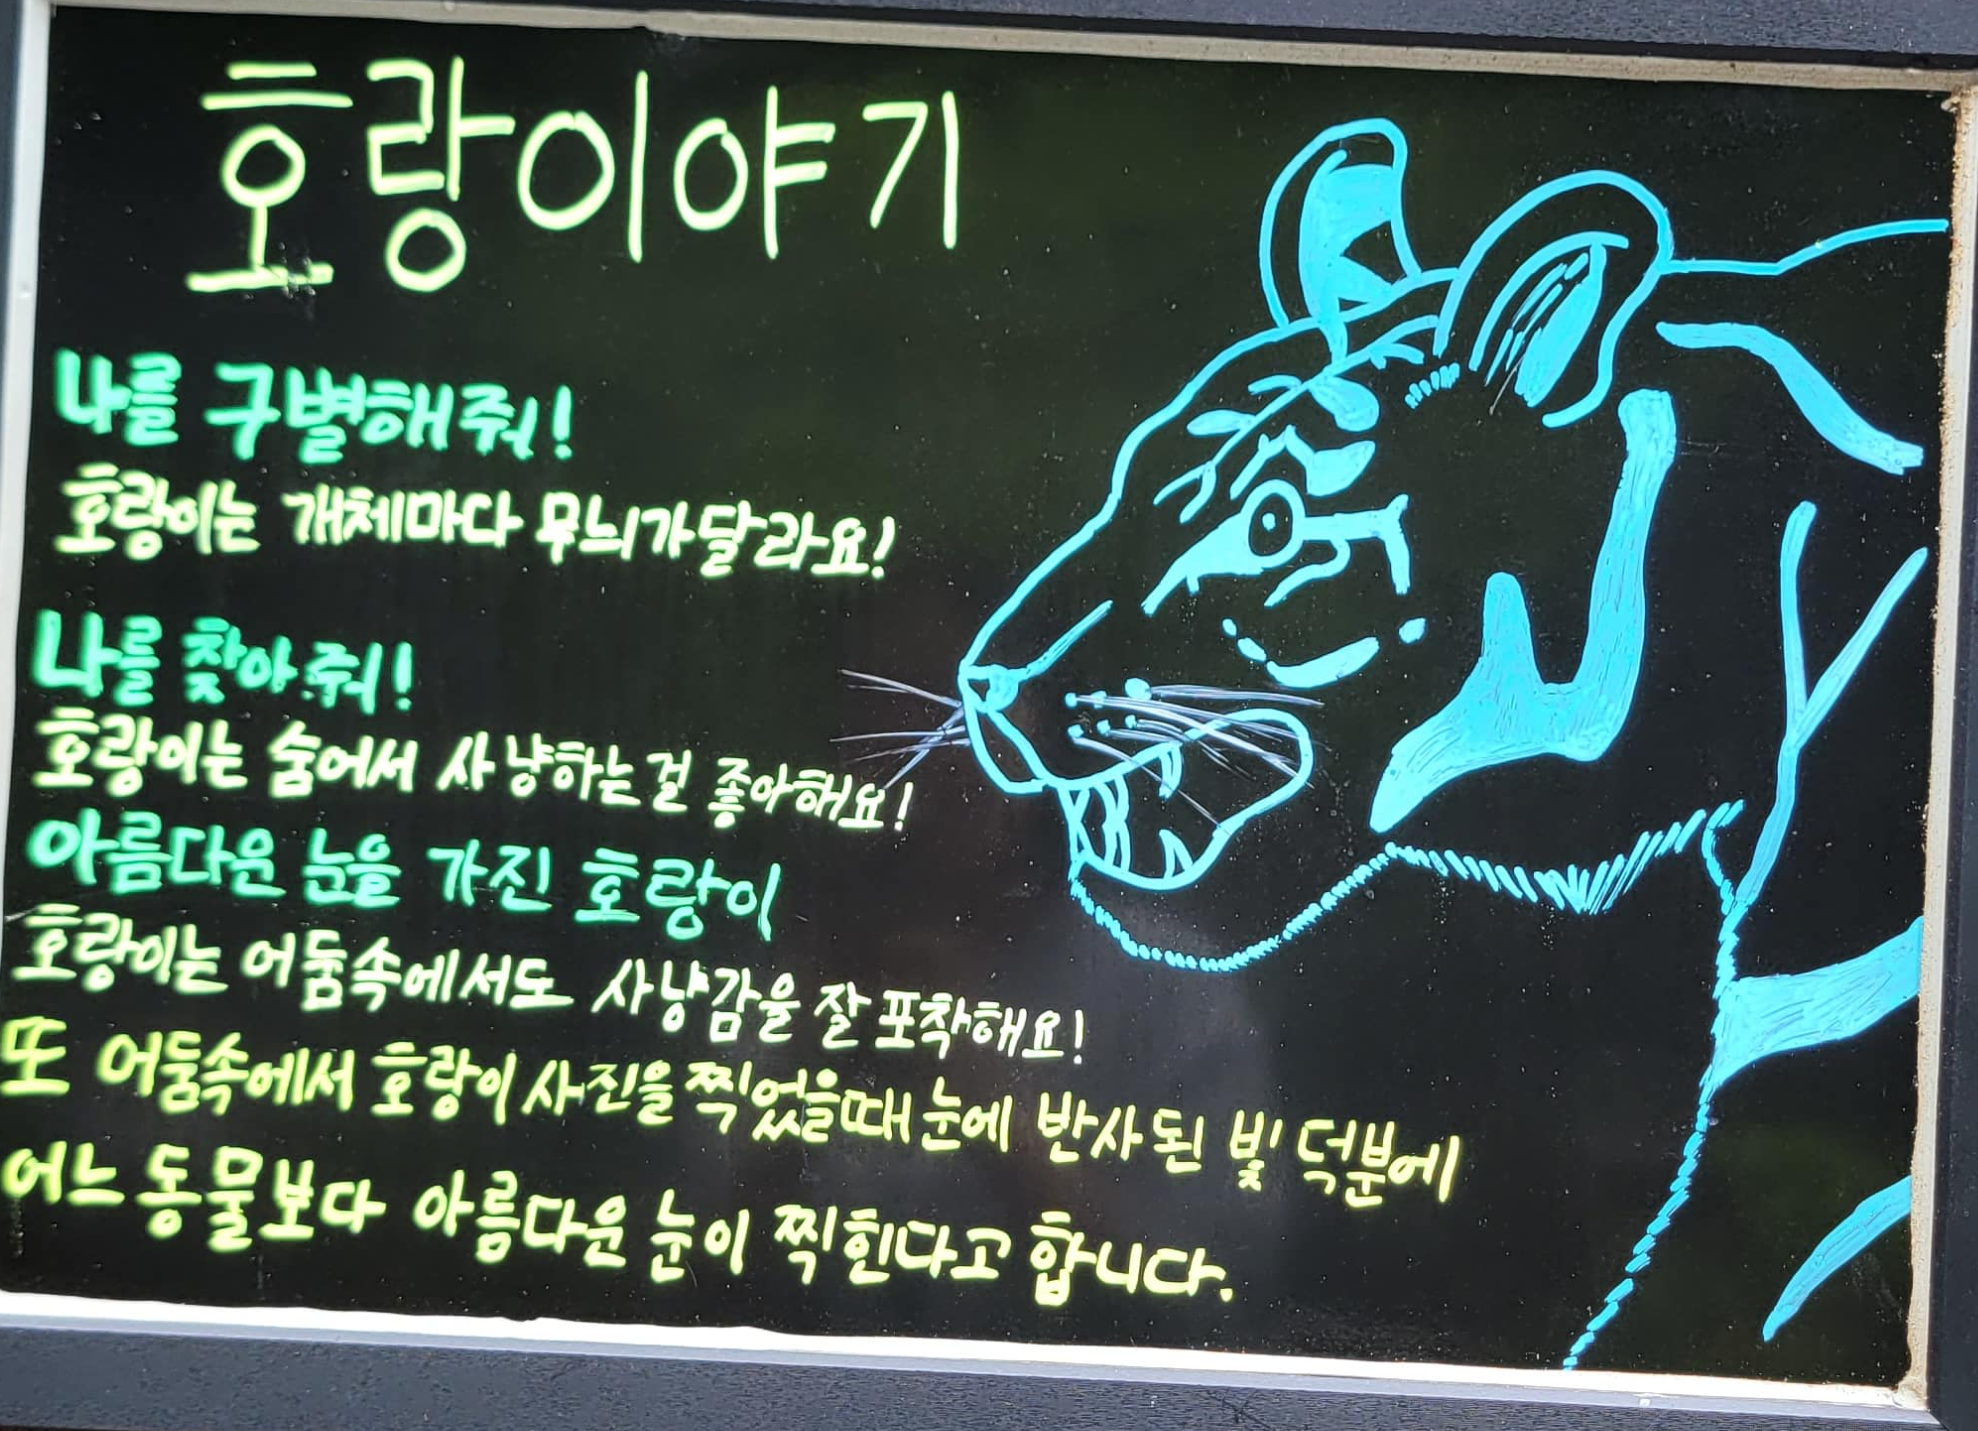 호랑이야기
나를 구별해줘!
호랑이는 개체마다 무늬가달라요!
나를 찾아줘!
호랑이는 숨어서 사냥하는걸 좋아해요!
아름다운 눈을 가진 호랑이
호랑이는 어둠속에서도 사냥감을 잘 포착해요!
또 어둠속에서 호랑이 사진을 찍었을때 눈에 반사된 빛 덕분에
어느 동물보다 아름다운 눈이 찍힌다고 합니다.